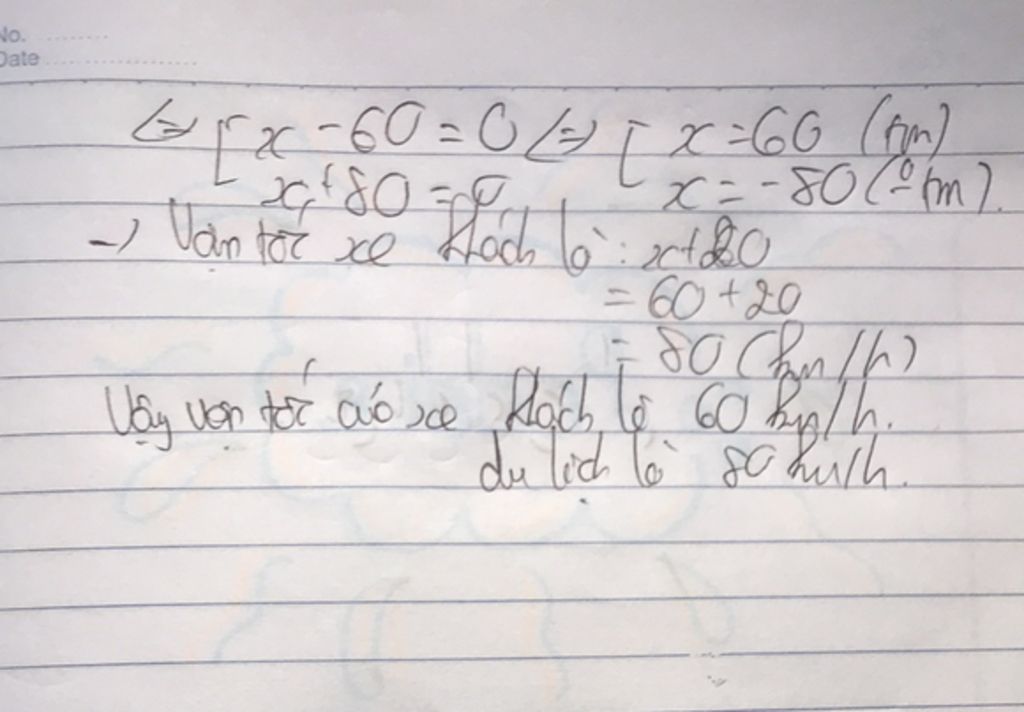 No. ............
Date ............................
<=> [ x - 60 = 0 <=> [ x = 60 (tm)
x + 80 = 0 x = -80 (0 tm).
-> Vận tốc xe khách là: x + 20
= 60 + 20
= 80 (km/h)
Vậy vận tốc của xe khách là 60 km/h.
du lịch là 80 km/h.